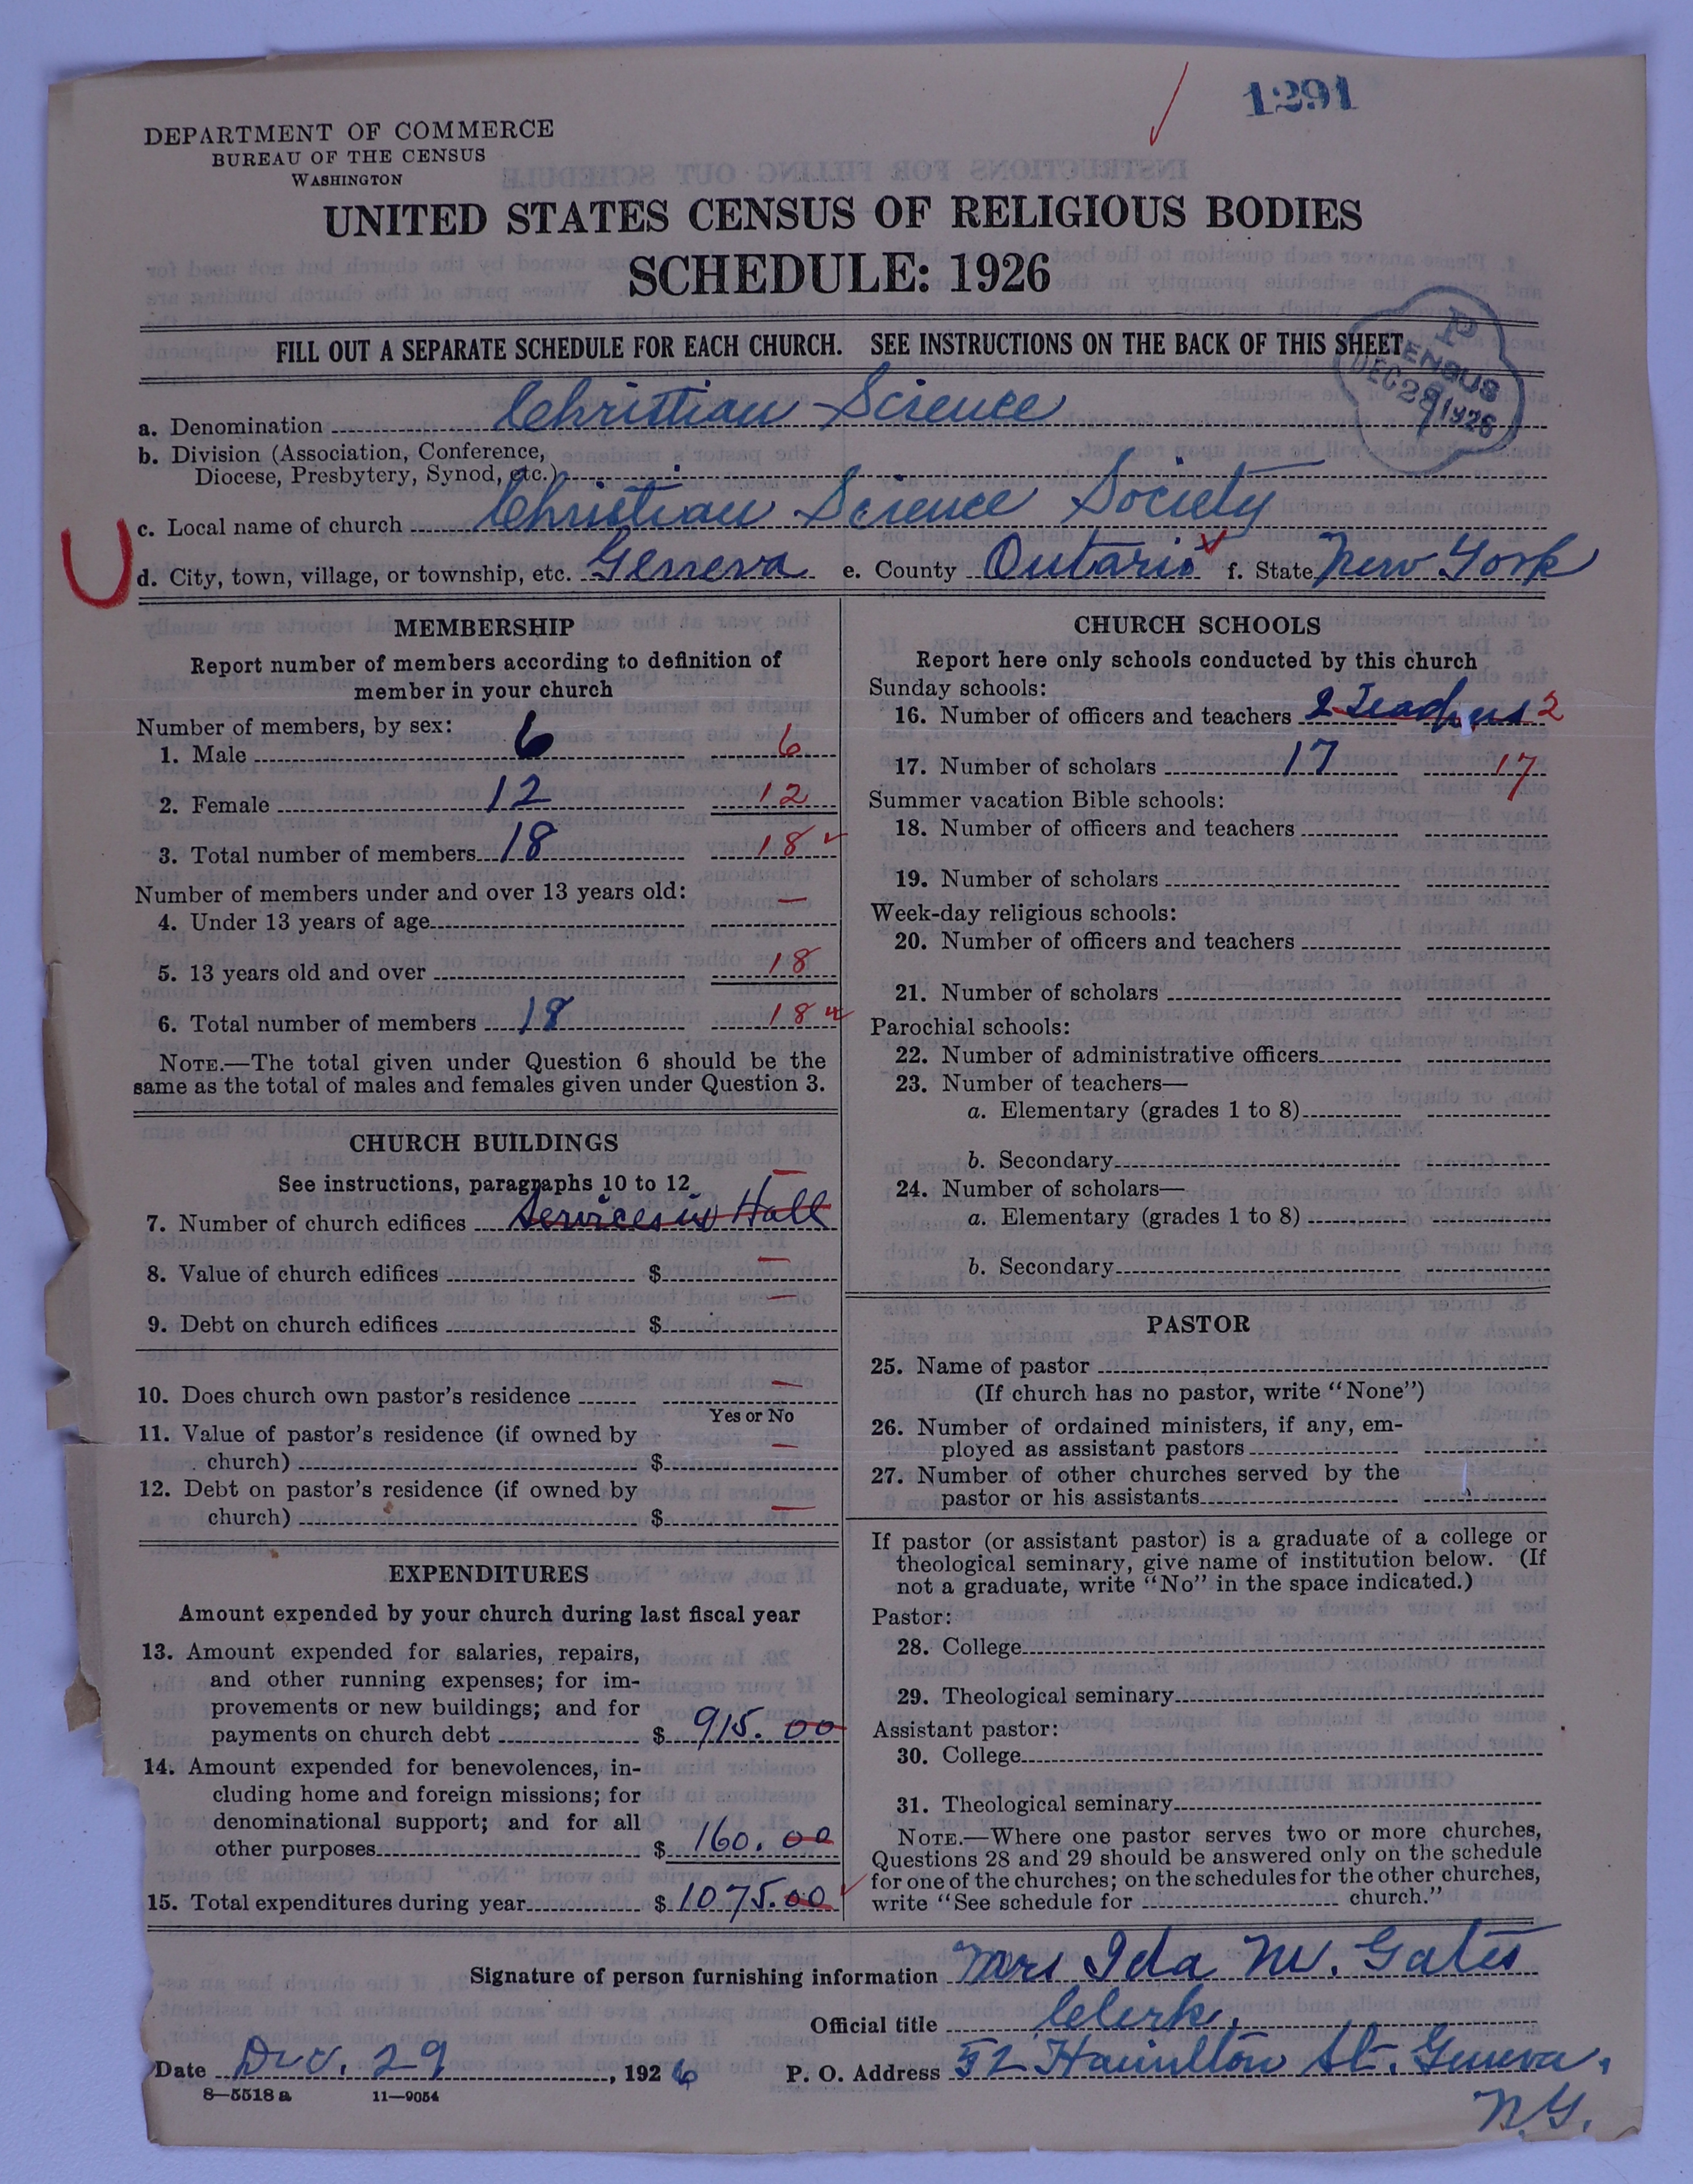 1291
DEPARTMENT OF COMMERCE
BUREAU OF THE CENSUS
WASHINGTON
UNITED STATES CENSUS OF RELIGIOUS BODIES
SCHEDULE: 1926
FILL OUT A SEPARATE SCHEDULE FOR EACH CHURCH. SEE INSTRUCTIONS ON THE BACK OF THIS SHEET
a. Denomination Christian Science
b. Division (Association, Conference,
Diocese, Presbytery, Synod, etc.)
c. Local name of church Christian Science Society
d. City, town, village, or township, etc. Geneva e. County Ontario f. State New York
MEMBERSHIP
Report number of members according to definition of
member in your church
Number of members, by sex:
1. Male 6 6
2. Female 12 12
3. Total number of members 18 18
Number of members under and over 13 years old:
4. Under 13 years of age —
5. 13 years old and over 18
6. Total number of members 18 18
NOTE.—The total given under Question 6 should be the
same as the total of males and females given under Question 3.
CHURCH BUILDINGS
See instructions, paragraphs 10 to 12
7. Number of church edifices Services in Hall —
8. Value of church edifices $ —
9. Debt on church edifices $ —
10. Does church own pastor's residence —
Yes or No
11. Value of pastor's residence (if owned by
church) $ —
12. Debt on pastor's residence (if owned by
church) $ —
EXPENDITURES
Amount expended by your church during last fiscal year
13. Amount expended for salaries, repairs,
and other running expenses; for im-
provements or new buildings; and for
payments on church debt $ 915.00
14. Amount expended for benevolences, in-
cluding home and foreign missions; for
denominational support; and for all
other purposes $ 160.00
15. Total expenditures during year $ 1075.00
CHURCH SCHOOLS
Report here only schools conducted by this church
Sunday schools:
16. Number of officers and teachers 2 Teachers 2
17. Number of scholars 17 17
Summer vacation Bible schools:
18. Number of officers and teachers
19. Number of scholars
Week-day religious schools:
20. Number of officers and teachers
21. Number of scholars
Parochial schools:
22. Number of administrative officers
23. Number of teachers—
a. Elementary (grades 1 to 8)
b. Secondary
24. Number of scholars—
a. Elementary (grades 1 to 8)
b. Secondary
PASTOR
25. Name of pastor
(If church has no pastor, write "None")
26. Number of ordained ministers, if any, em-
ployed as assistant pastors
27. Number of other churches served by the
pastor or his assistants
If pastor (or assistant pastor) is a graduate of a college or
theological seminary, give name of institution below. (If
not a graduate, write "No" in the space indicated.)
Pastor:
28. College
29. Theological seminary
Assistant pastor:
30. College
31. Theological seminary
NOTE.—Where one pastor serves two or more churches,
Questions 28 and 29 should be answered only on the schedule
for one of the churches; on the schedules for the other churches,
write "See schedule for church."
Signature of person furnishing information Mrs Ida M. Gates
Official title Clerk.
Date Dec. 29, 1926 P. O. Address 52 Hamilton St. Geneva.
N.Y.
8—5518a 11—9054